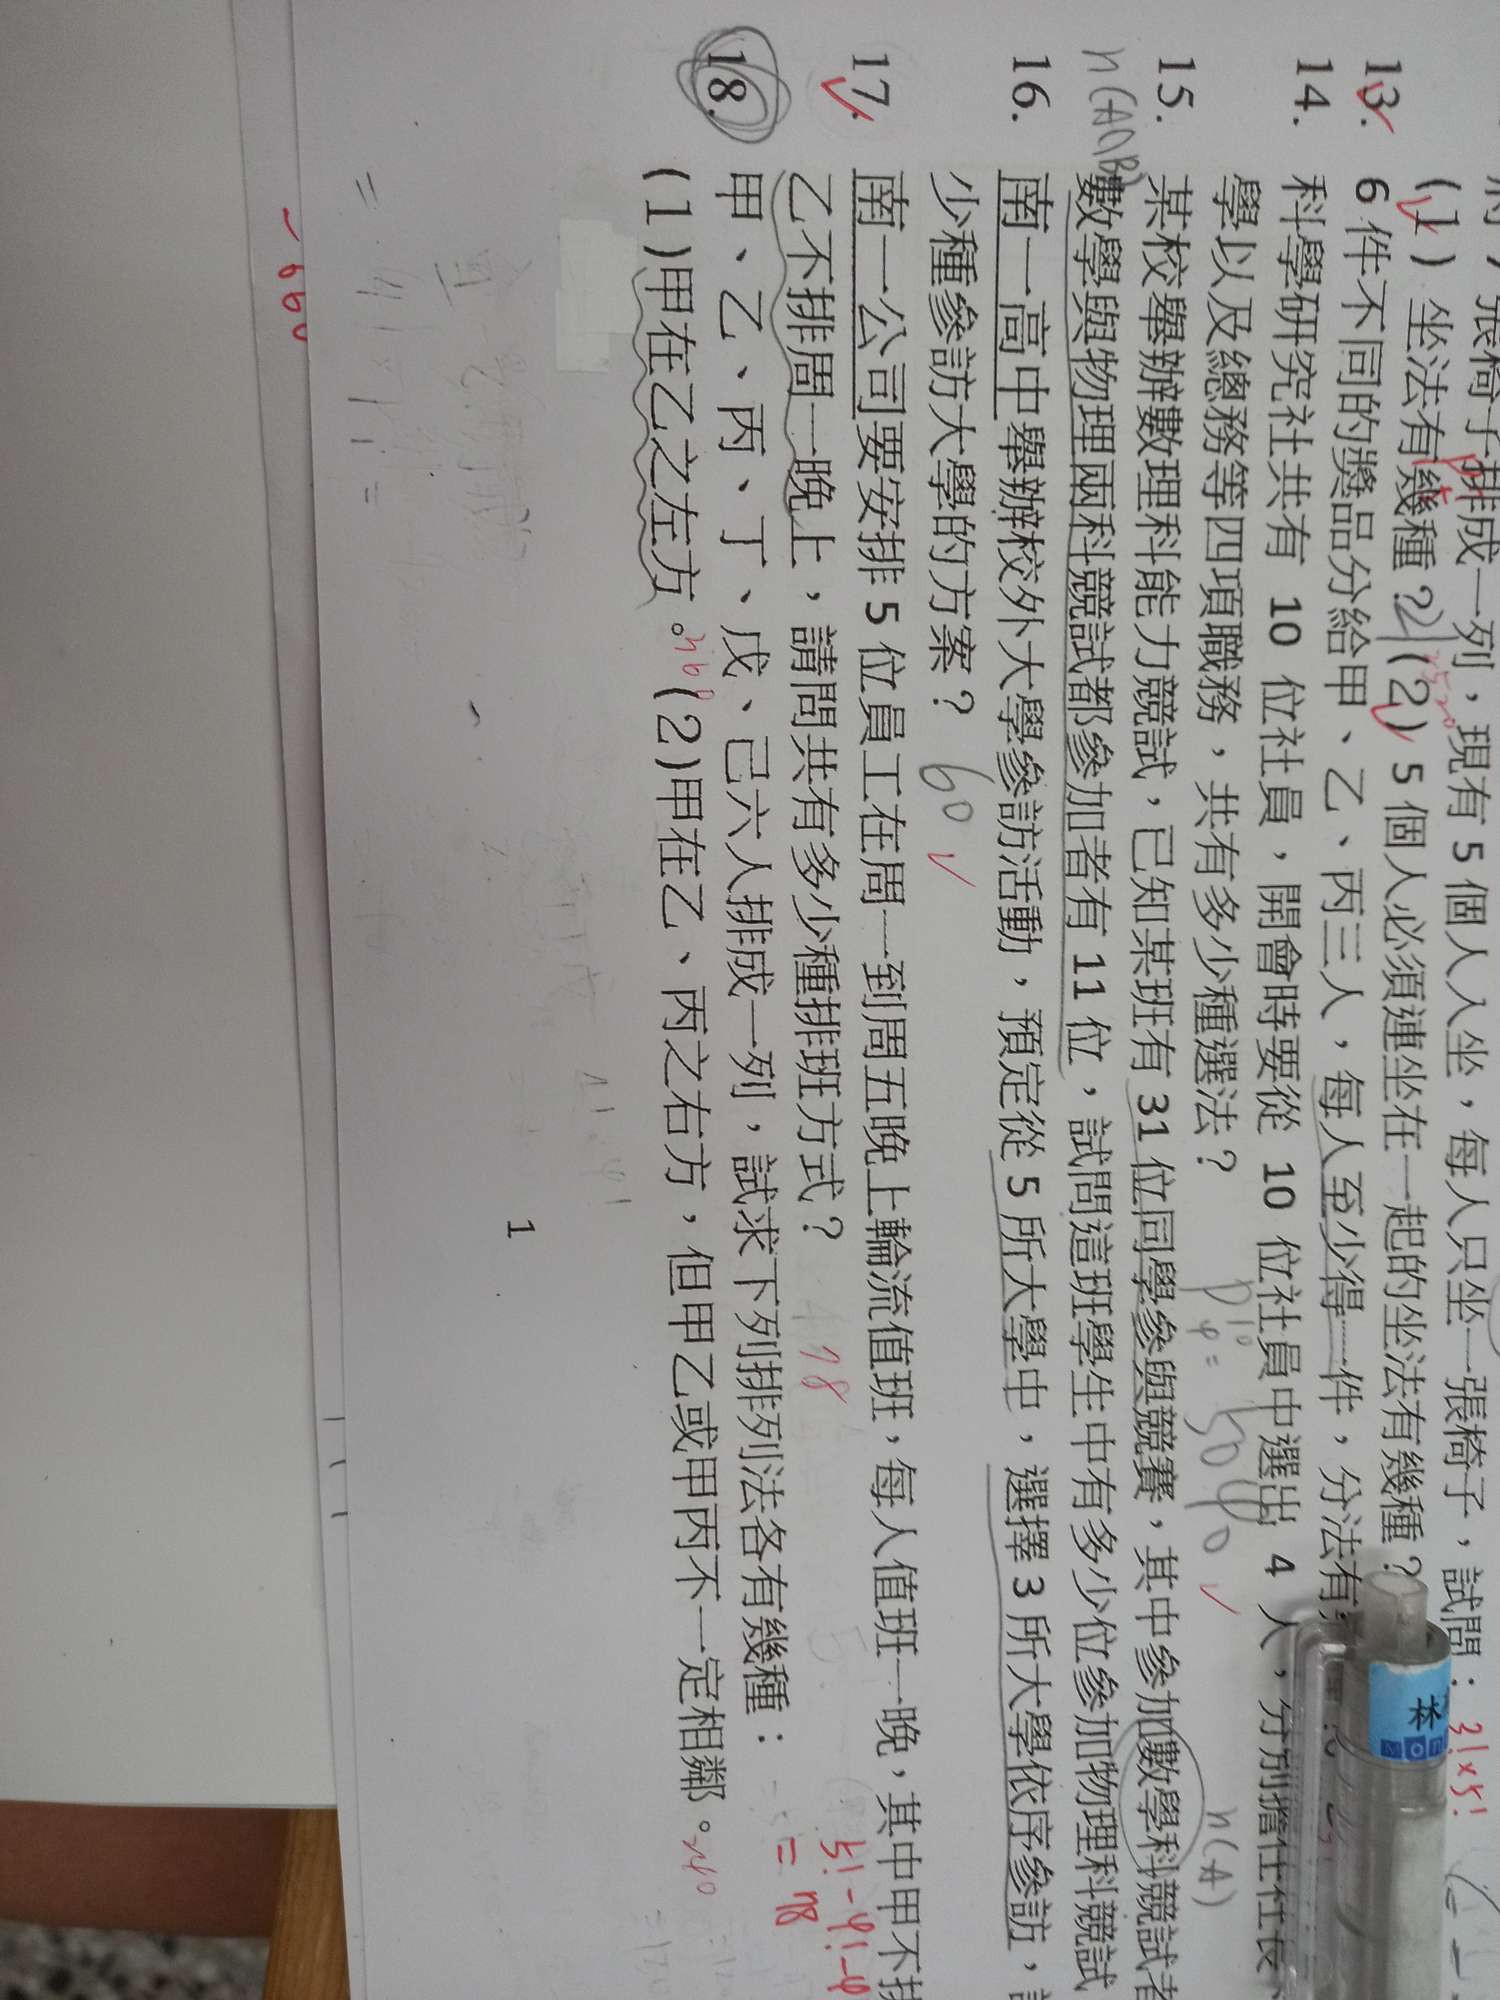 張椅子排成一列，現有 5 個人入坐，每人只坐一張椅子，試問：
3!×5!
(1) 坐法有幾種？ (2) 5 個人必須連坐在一起的坐法有幾種？
13. 6 件不同的獎品分給甲、乙、丙三人，每人至少得一件，分法有
14. 科學研究社共有 10 位社員，開會時要從 10 位社員中選出 4 人，分別擔任社長、
學以及總務等四項職務，共有多少種選法？
5040
15. 某校舉辦數理科能力競試，已知某班有 31 位同學參與競賽，其中參加數學科競試者
n(A∩B)
n(A)
數學與物理兩科競試都參加者有 11 位，試問這班學生中有多少位參加物理科競試
16. 南一高中舉辦校外大學參訪活動，預定從 5 所大學中，選擇 3 所大學依序參訪，
少種參訪大學的方案？
60
17. 南一公司要安排 5 位員工在周一到周五晚上輪流值班，每人值班一晚，其中甲不排
乙不排周一晚上，請問共有多少種排班方式？
78
5!-4!-4
=78
18. 甲、乙、丙、丁、戊、己六人排成一列，試求下列排列法各有幾種：
(1)甲在乙之左方。(2)甲在乙、丙之右方，但甲乙或甲丙不一定相鄰。
240
1